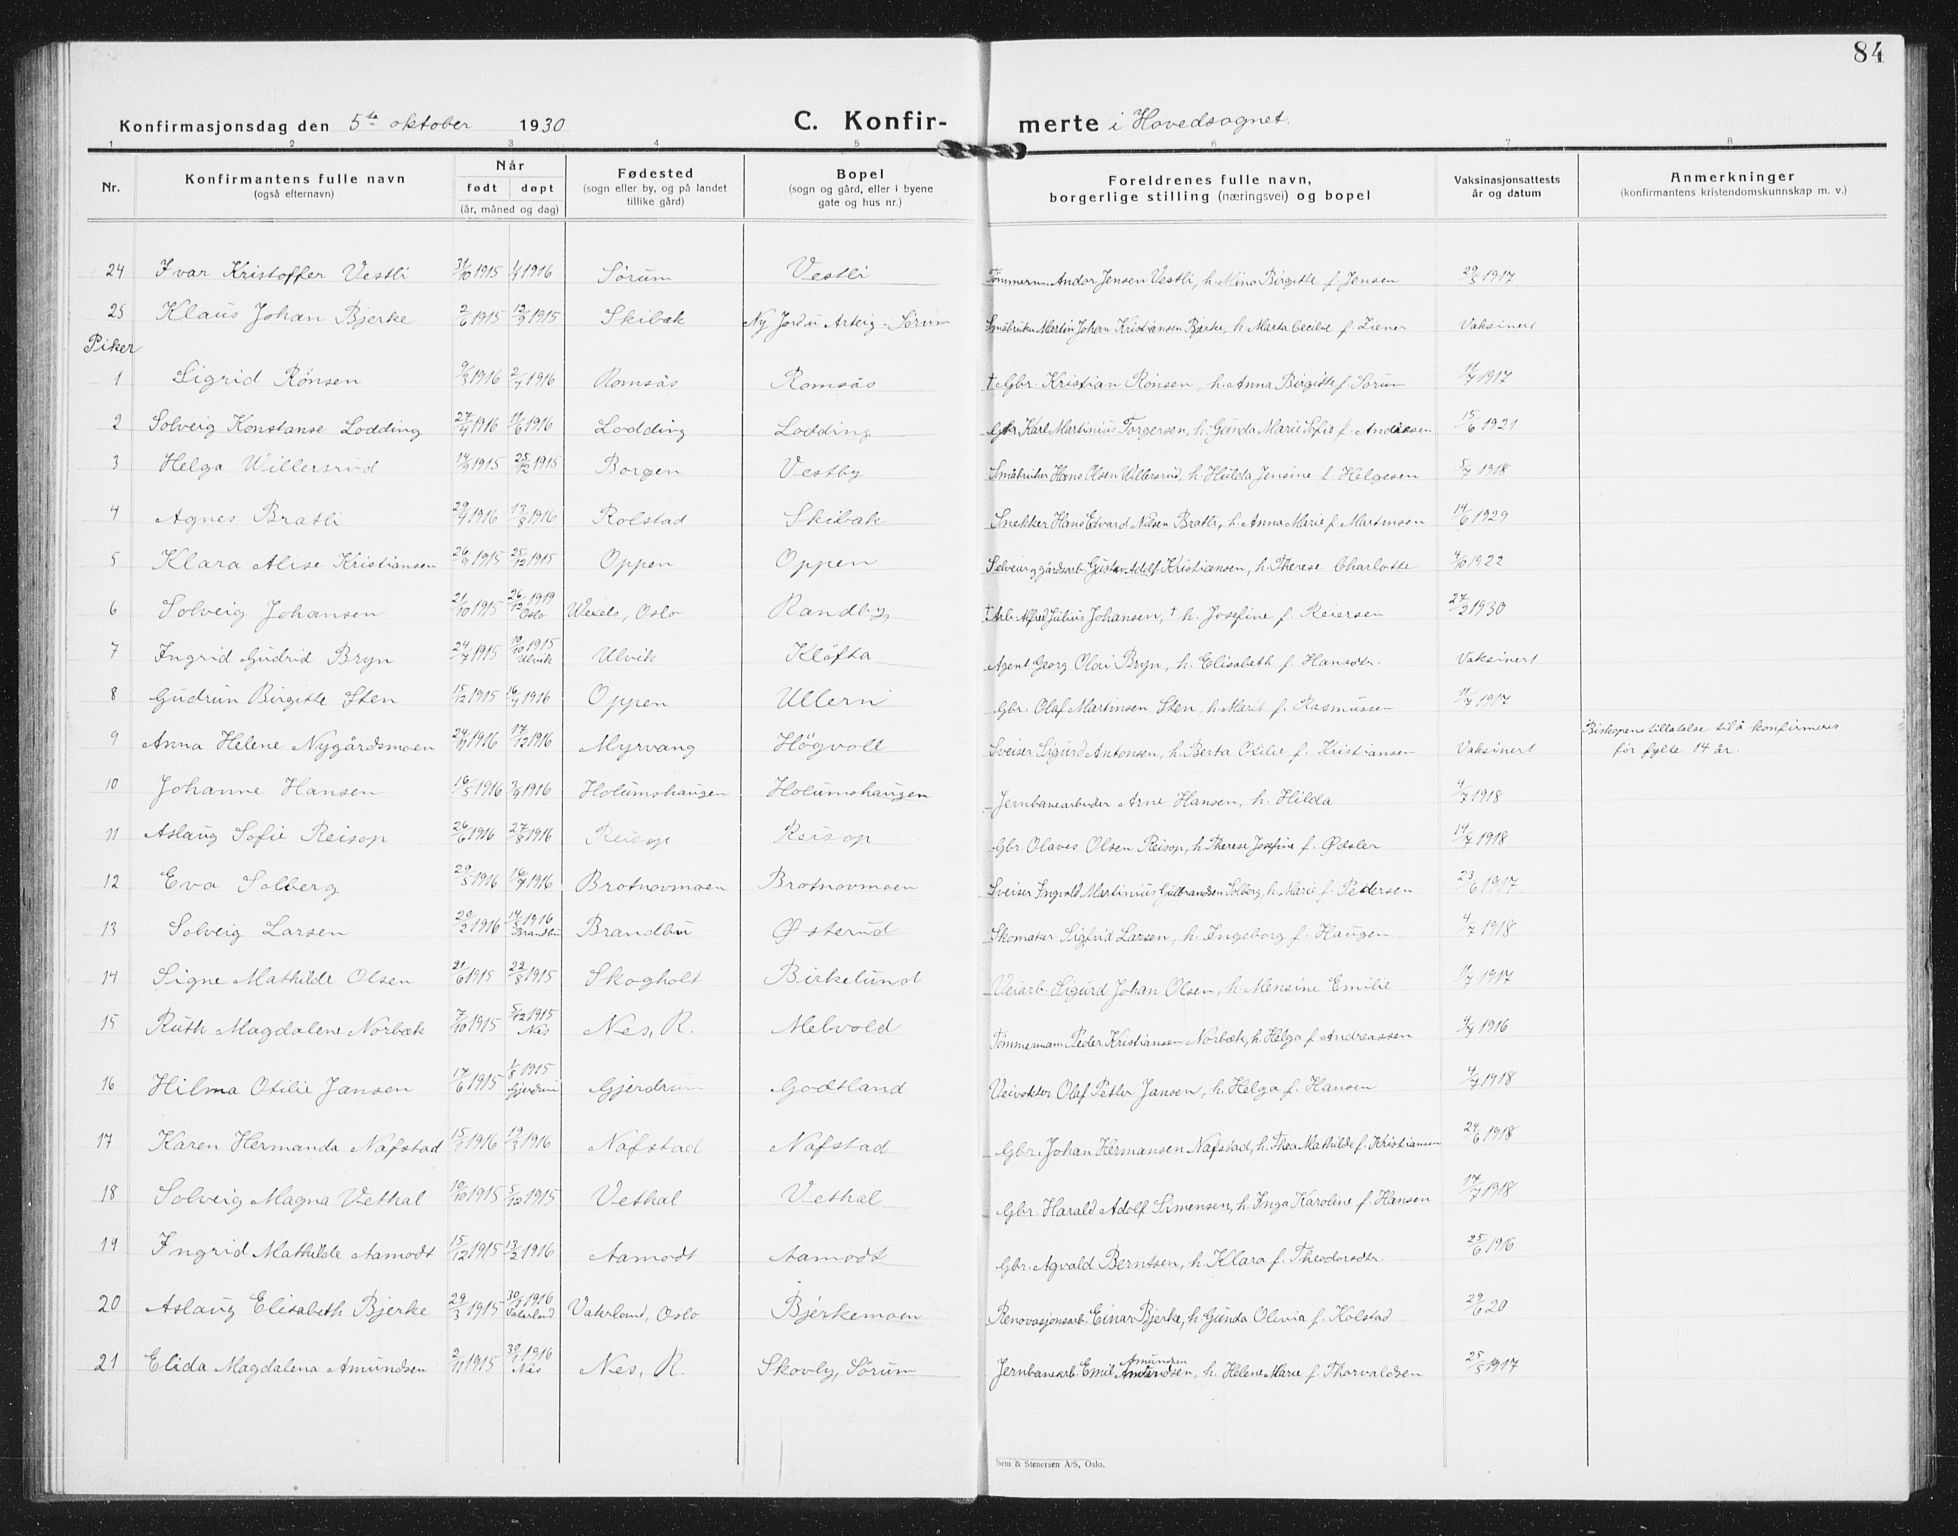 84
Konfirmasjonsdag den 5te oktober 1930 C. Konfir- merte i Hovedsognet.
1 2 3 4 5 6 7 8
Nr. Konfirmantens fulle navn (også efternavn) Når født døpt (år, måned og dag) Fødested (sogn eller by, og på landet tillike gård) Bopel (sogn og gård, eller i byene gate og hus nr.) Foreldrenes fulle navn, borgerlige stilling (næringsvei) og bopel Vaksinasjonsattests år og datum Anmerkninger (konfirmantens kristendomskunnskap m. v.)
24 Ivar Kristoffer Vestli 31/10 1915 1/4 1916 Sørum Vestli Tömmerm. Andor Jensen Vestli, h. Mina Birgitte f. Jensen 29/5 1917
25 Klaus Johan Bjerke 2/6 1915 12/9 1915 Skibak Ny Jord u. Arteig - Sørum Småbruker Martin Johan Kristiansen Bjerke, h. Marta Cecilie f. Ziener Vaksinert
Piker
1 Sigrid Rönsen 9/3 1916 2/4 1916 Romsås Romsås † Gbr. Kristian Rönsen, h. Anna Birgitte f. Sørum 11/7 1917
2 Solveig Konstanse Lodding 27/4 1916 11/6 1916 Lodding Lodding Gbr. Karl Martinius Torgersen, h. Gunda Marie Sofie f. Andersen 15/6 1921
3 Helga Willersrud 14/9 1915 25/12 1915 Borgen Vestby Småbruker Hans Olsen Willersrud, h. Hulda Jensine f. Helgesen 5/7 1918
4 Agnes Bratli 29/4 1916 13/8 1916 Rolstad Skibak Snekker Hans Edvard Nilsen Bratli, h. Anna Marie f. Martinsen 14/6 1929
5 Klara Alise Kristiansen 26/9 1915 25/12 1915 Oppen Oppen Selveier og gårdsarb. Gustav Adolf Kristiansen, h. Therese Charlotte 4/10 1922
6 Solveig Johansen 21/10 1915 26/12 1919 Oslo Wexels, Oslo Randby, † Arb. Alfred Julius Johansen, † h. Josefine f. Reiersen 27/2 1930
7 Ingrid Gudrid Bryn 24/7 1915 10/10 1915 Ulvik Ulvik Klöfta Agent Georg Olai Bryn, h. Elisabeth f. Hansdtr. Vaksinert
8 Gudrun Birgitte Sten 15/12 1915 16/4 1916 Oppen Ullern Gbr. Olaf Martinsen Sten, h. Marit f. Rasmussen 11/7 1917
9 Anna Helene Nygårdsmoen 24/11 1916 17/12 1916 Myrvang Högvoll Sveiser Sigurd Antonsen, h. Berta Otilie f. Kristiansen Vaksinert Biskopens tillatelse til å konfirmeres
før fylte 14 år.
10 Johanne Hansen 16/5 1916 3/9 1916 Holumshaugen Holumshaugen Jernbanearbeider Arne Hansen, h. Hilda 4/7 1918
11 Aslaug Sofie Reisop 26/6 1916 27/8 1916 Reisop Reisop Gbr. Olaves Olsen Reisop, h. Therese Josefine f. Ødsler 14/7 1918
12 Eva Solberg 29/5 1916 16/7 1916 Brotnovmoen Brotnovmoen Sveiser Ingvald Martinius Gulbrandsen Solberg, h. Marie f. Pedersen 23/6 1917
13 Solveig Larsen 20/2 1916 14/5 1916 Brandbu Brandbu Østerud Skomaker Sigfrid Larsen, h. Ingeborg f. Haugen 4/7 1918
14 Signe Mathilde Olsen 21/6 1915 22/8 1915 Skogholt Birkelund Veiarb. Sigurd Johan Olsen, h. Mensine Emilie 11/7 1917
15 Ruth Magdalene Norbæk 7/10 1915 5/12 1915 Nes Nes, R. Melvold Tömmermann Peder Kristiansen Norbæk, h. Helga f. Andreassen 4/7 1916
16 Hilma Otilie Jansen 17/6 1915 1/8 1915 Gjerdrum Gjerdrum Godtland Veivokter Olaf Petter Jansen, h. Helga f. Hansen 4/7 1918
17 Karen Hermanda Nafstad 15/1 1916 19/3 1916 Nafstad Nafstad Gbr. Johan Hermansen Nafstad, h. Thea Mathilde f. Kristiansen 24/6 1918
18 Solveig Magna Vethal 10/10 1915 5/12 1915 Vethal Vethal Gbr. Harald Adolf Simensen, h. Inga Karoline f. Hansen 17/7 1918
19 Ingrid Mathilde Aamodt 15/12 1915 13/2 1916 Aamodt Aamodt Gbr. Agvald Berntsen, h. Klara f. Theodorsdtr. 25/6 1916
20 Aslaug Elisabeth Bjerke 29/3 1915 30/1 1916 Vaterland Vaterland, Oslo Bjerkemoen Renovasjonsarb. Einar Bjerke, h. Gunda Olivia f. Kolstad 29/6 20
21 Elida Magdalena Amundsen 2/11 1915 30/1 1916 Nes Nes, R. Skovly, Sørum Jernbanearb. Emil Amundsen, h. Helene Marie f. Thorvaldsen 25/5 1917
Sem & Stenersen A/S, Oslo.